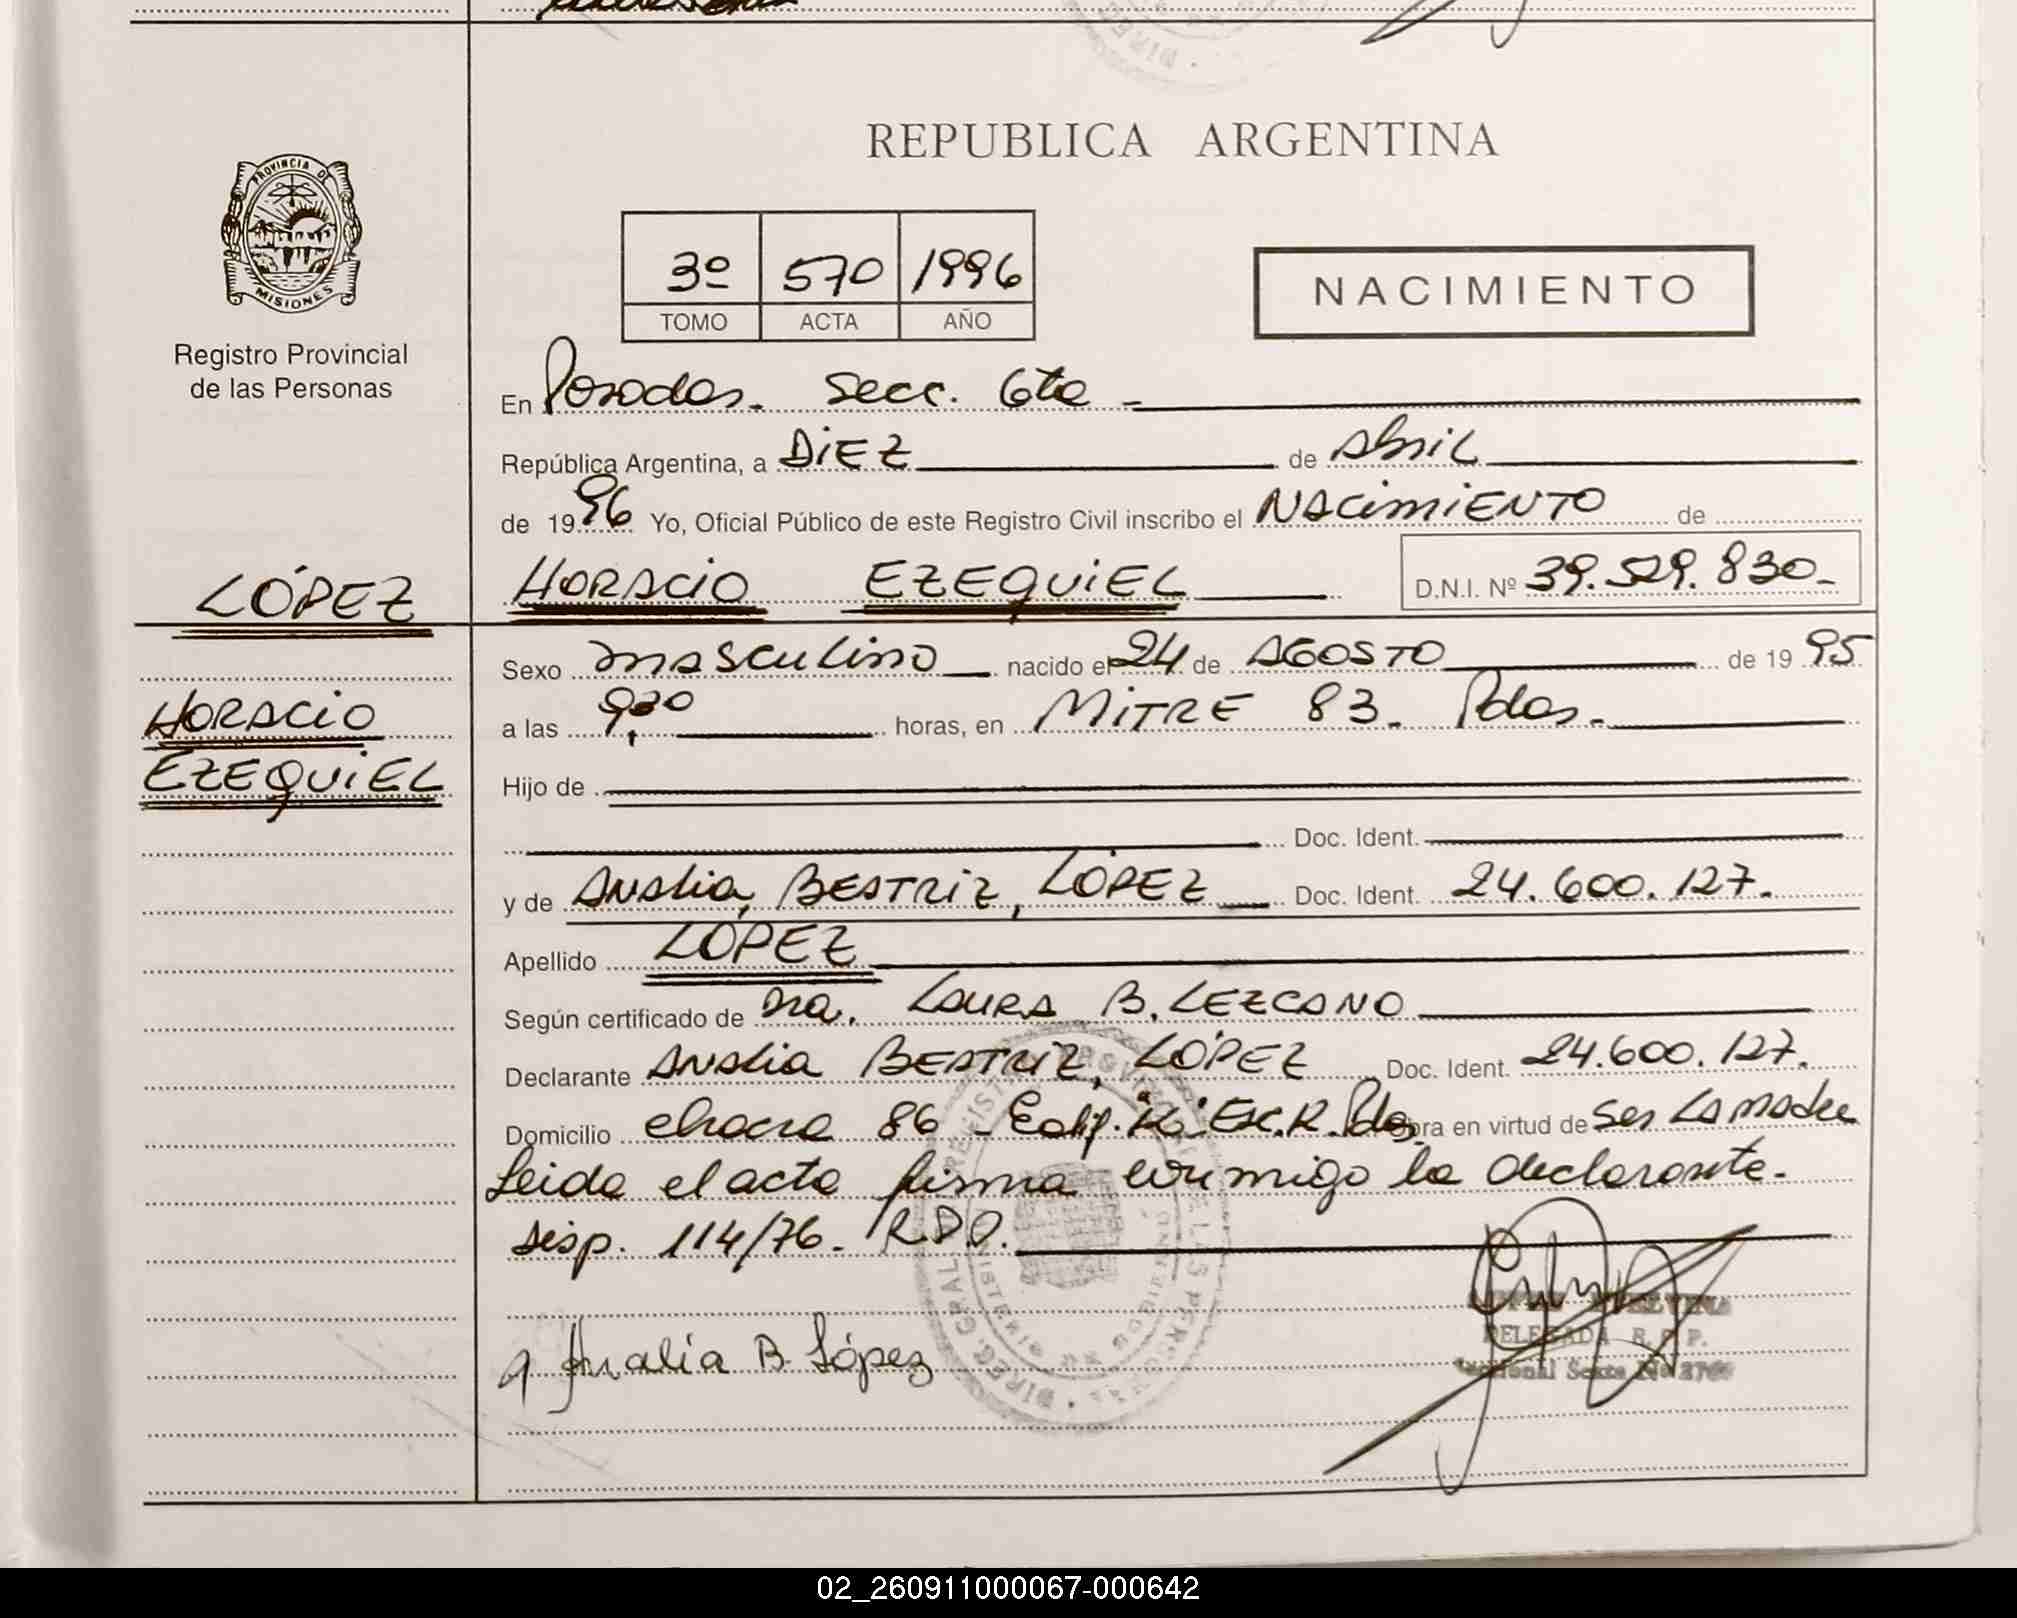 REPUBLICA ARGENTINA
PROVINCIA DE
MISIONES
Registro Provincial
de las Personas
3º 570 1996
TOMO ACTA AÑO
NACIMIENTO
En Posadas. Secc. 6ta
República Argentina, a DIEZ de Abril
de 1996 Yo, Oficial Público de este Registro Civil inscribo el NACIMIENTO de
LÓPEZ
HORACIO EZEQUIEL D.N.I. Nº 39.529.830.
Sexo masculino nacido el 24 de AGOSTO de 1995
HORACIO
a las horas, en MITRE 83. Pdas.
EZEQUIEL
Hijo de
Doc. Ident.
y de Analia, BEATRIZ, LÓPEZ Doc. Ident. 24.600.127.
Apellido LÓPEZ
Según certificado de LAURA B. LEZCANO
Declarante Analia BEATRIZ, LÓPEZ Doc. Ident. 24.600.127.
Domicilio chacra 86 - Edif. Pdas. Obra en virtud de Ser La madre
Leida el acta firma conmigo la declarante.
Disp. 114/76. R.D.P.
Analía B. López
DELEGADA R. P.
Seccional Sexta Nº
02_260911000067-000642